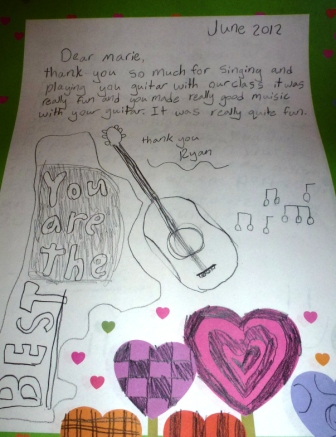 June 2012
Dear marie,
thank you so much for singing and
playing you guitar with our class it was
really fun and you made really good maisic
with your guitar. It was really quite fun.
thank you
Ryan
You
are
the
BEST